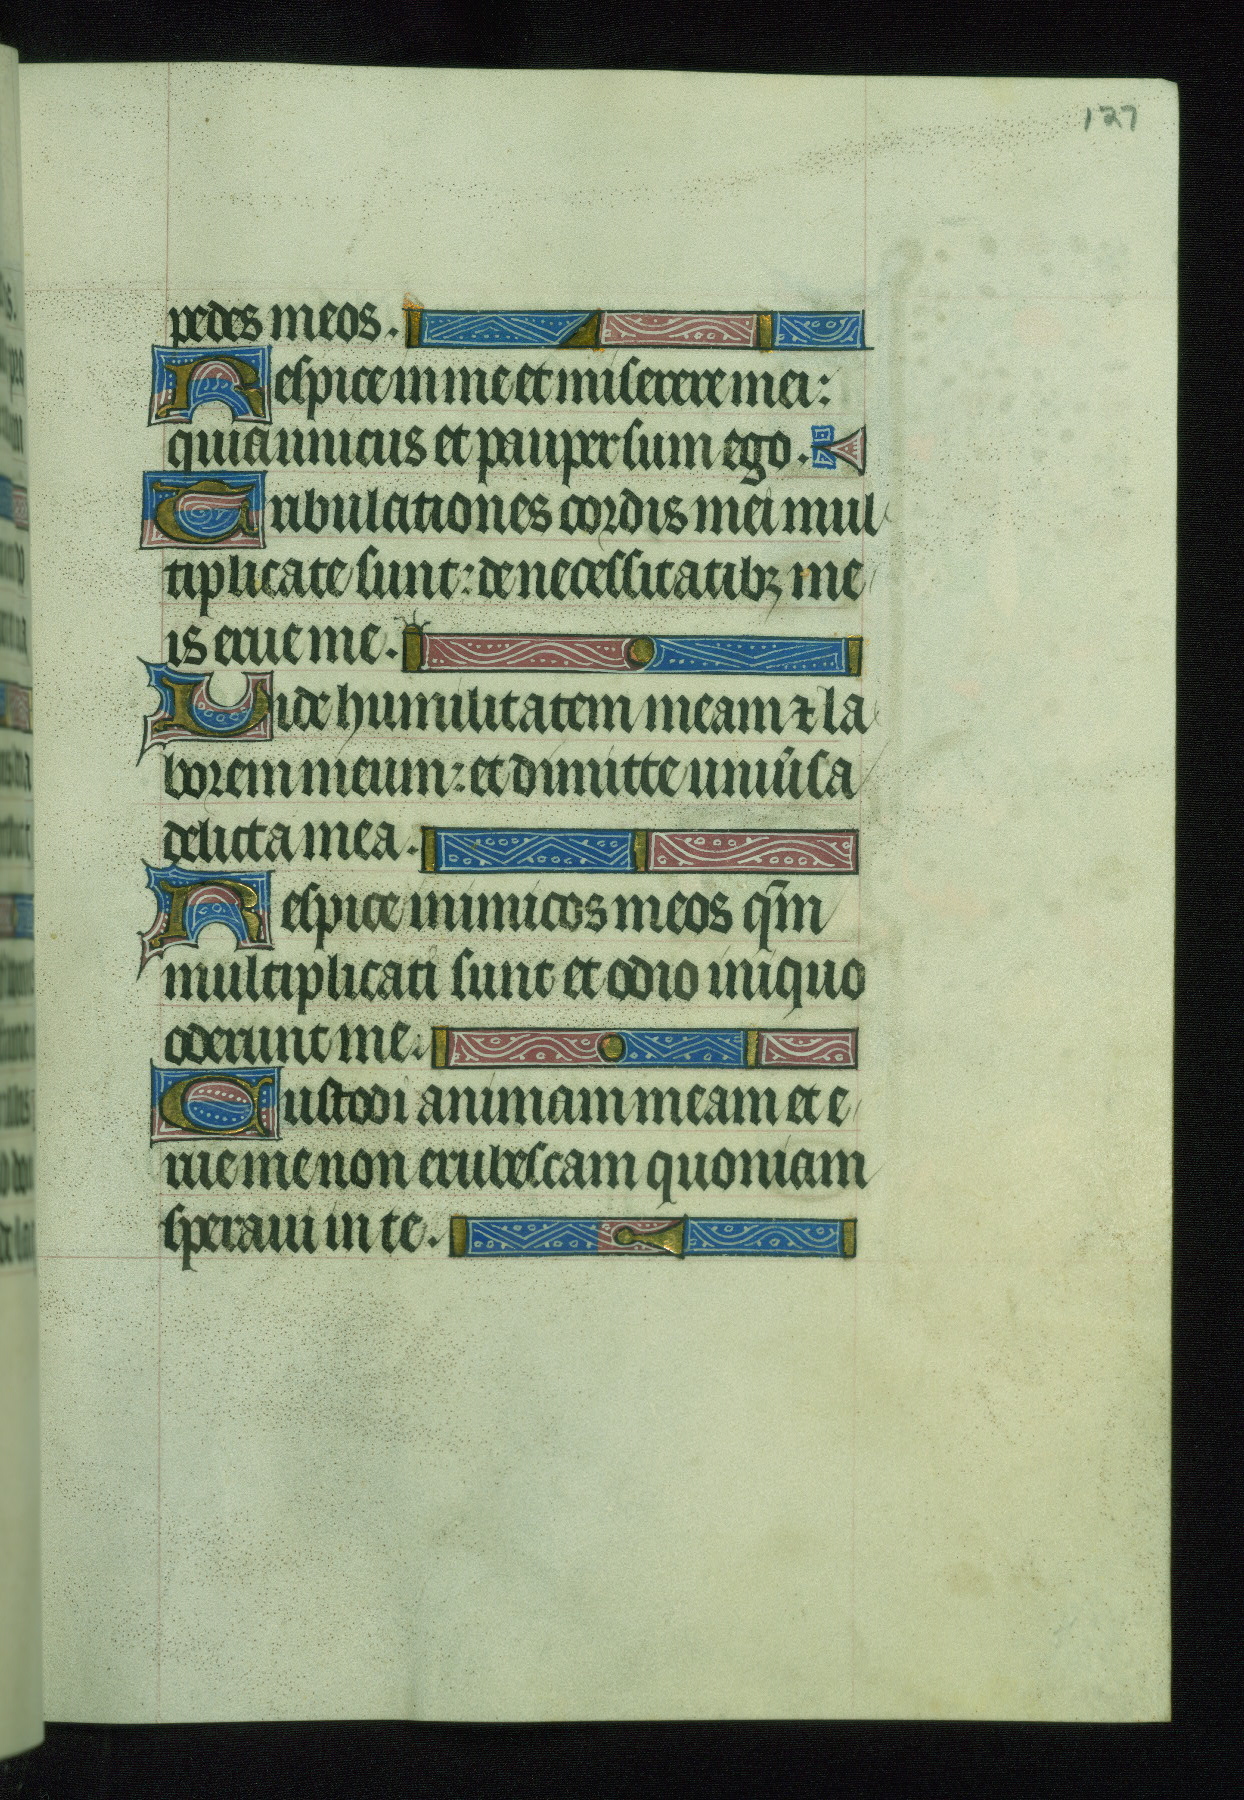 127
pedes meos.
Respice in me et miserere mei:
quia unicus et pauper sum ego.
Tribulationes cordis mei mul
tiplicate sunt: de necessitatibꝫ me
is erue me.
Vide humilitatem meam ⁊ la
borem meum: et dimitte uniũsa
delicta mea.
Respice inimicos meos qm̃
multiplicati sunt et odio iniquo
oderunt me.
Custodi animam meam et e
rue me non erubescam quoniam
speraui in te.